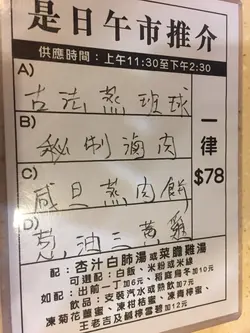 是日午市推介
供應時間：上午11:30至下午2:30
A)
古法蒸班球
B)
秘制滷肉
C)
咸旦蒸肉餅
D)
葱油三黄雞
一律
$78
配：杏汁白肺湯或菜膽雞湯
可選配：白飯、米粉或米線
如配：出前一丁加6元、稻庭烏冬加10元
飲品：支裝汽水或熱飲加7元
凍菊花薑蜜、凍柑桔蜜、凍青檸蜜、
王老吉及鹹檸雪碧加12元